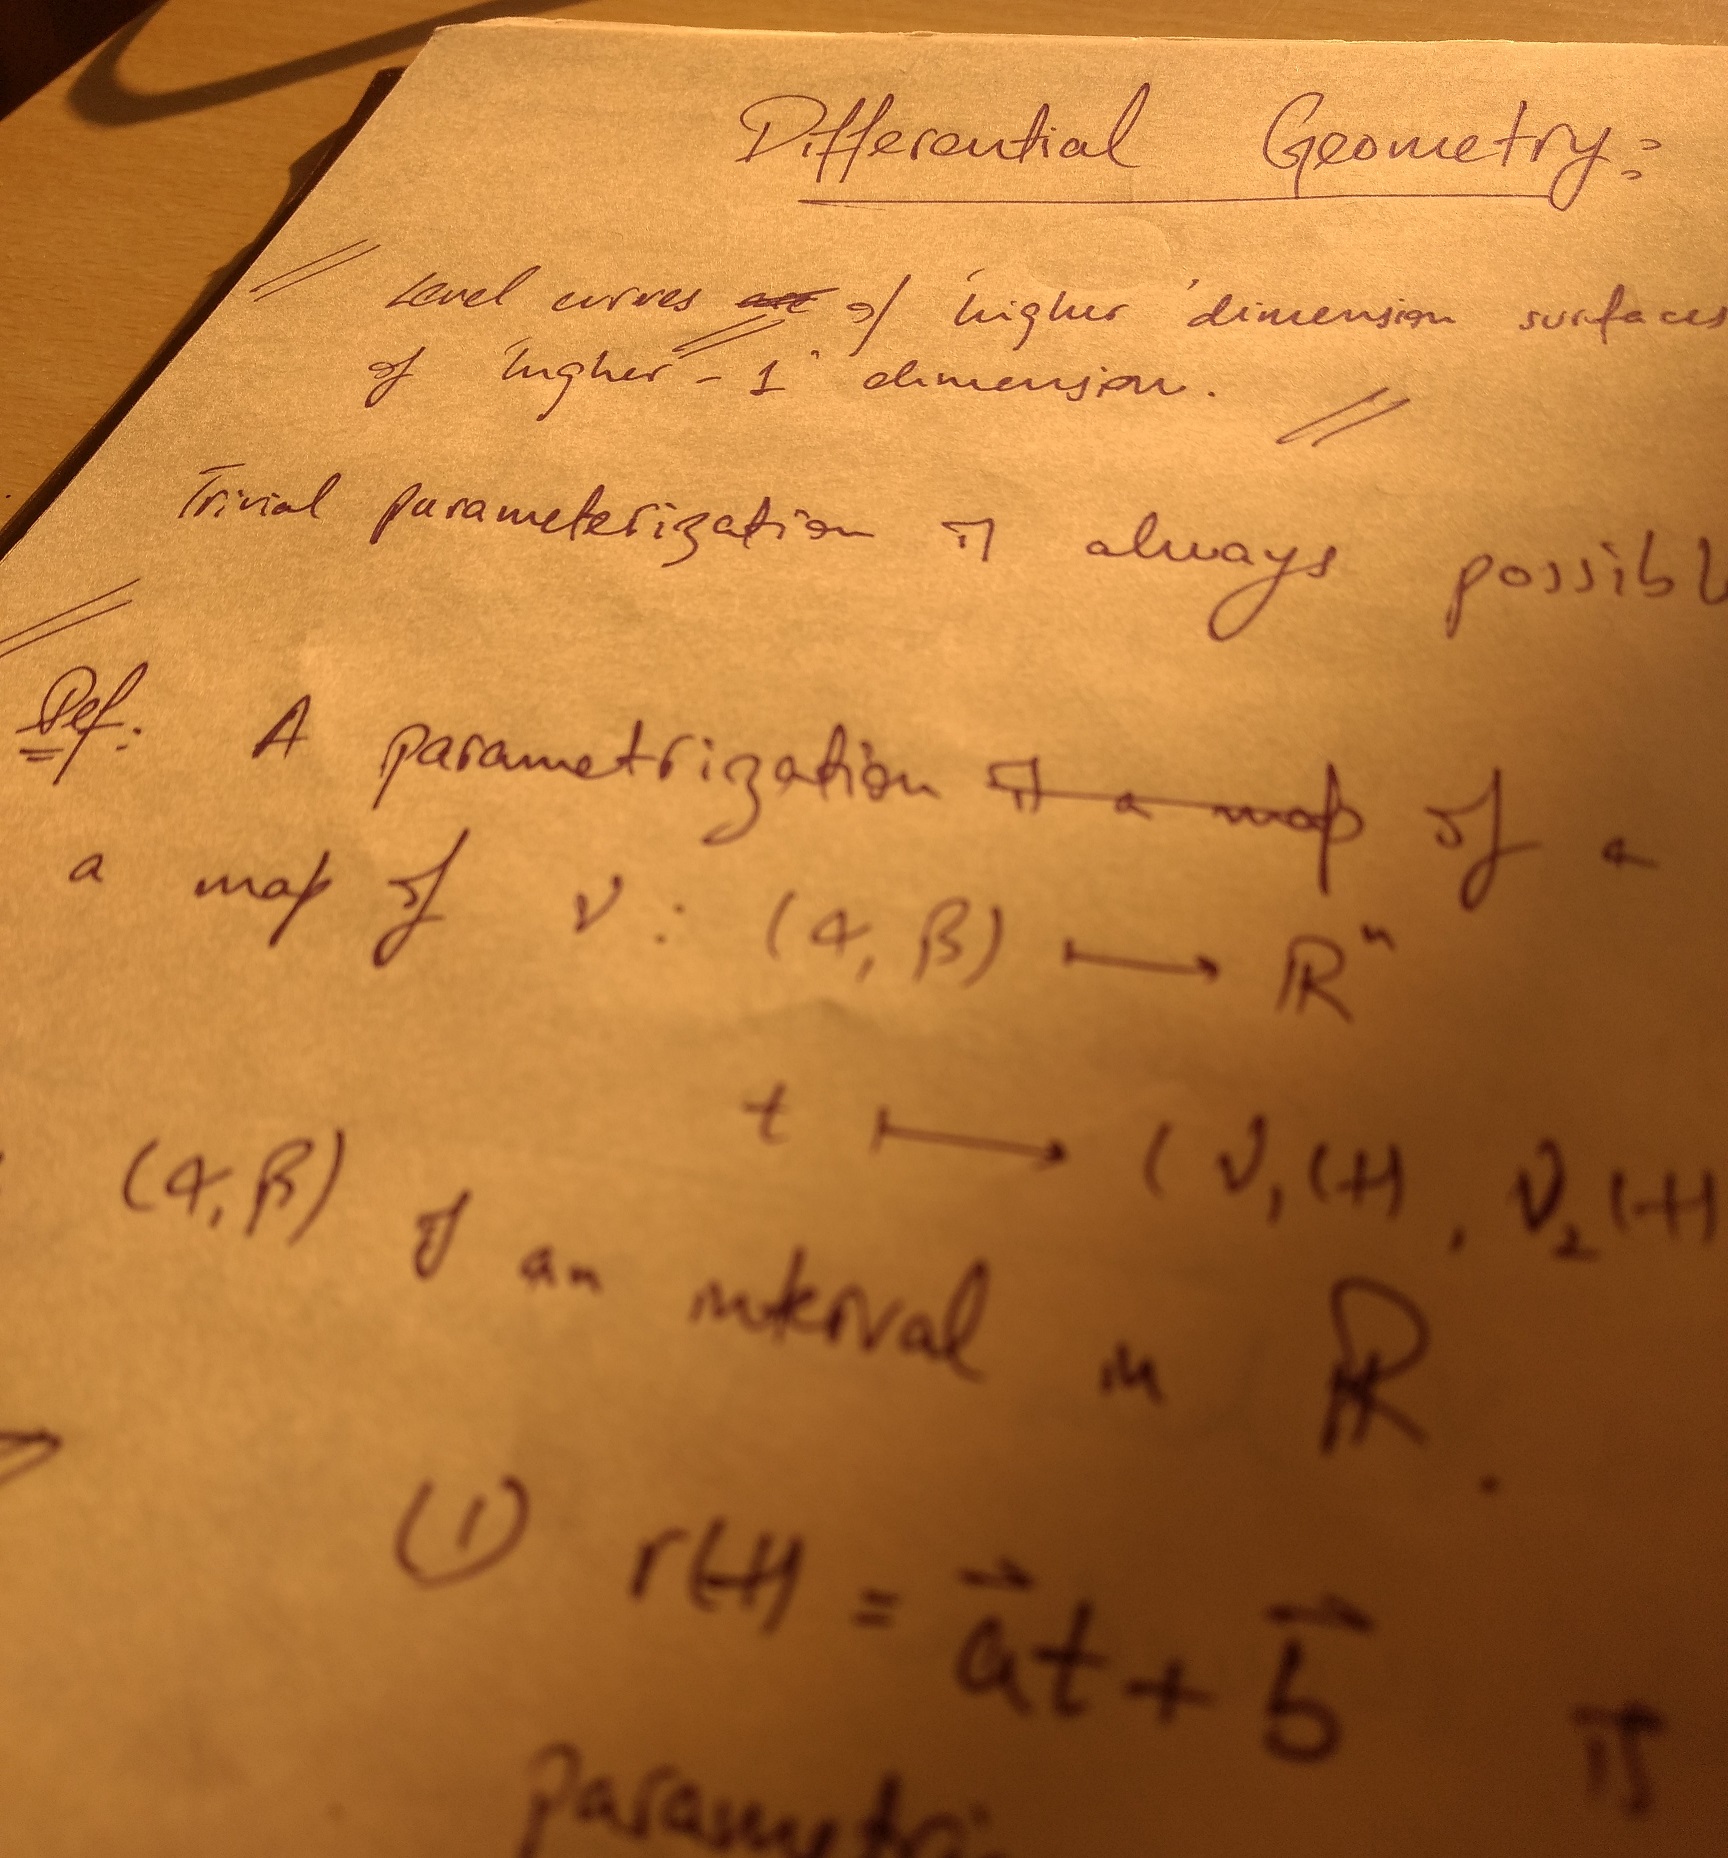 Differential Geometry:
Level curves of 'higher' dimension surfaces
of 'higher - 1' dimension.
Trivial parameterization is always possibl
Def: A parametrization is a map of a
a map of ν: (α, β) ⟼ ℝⁿ
t ⟼ (ν₁(t), ν₂(t)
(α, β) is an interval in ℝ.
(1) r(t) = a⃗t + b⃗ is
parametri